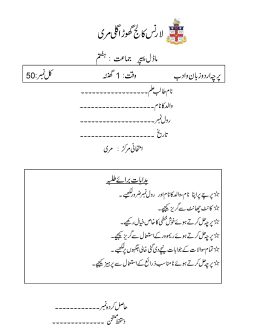 لارنس کالج گھوڑا گلی مری
ماڈل پیپر جماعت : ہشتم
پرچہ اردو زبان و ادب وقت: 1 گھنٹہ کل نمبر: 50
نام طالب علم
والد کا نام
رول نمبر
تاریخ
امتحانی مرکز : مری
ہدایات برائے طلبہ
پرچے پر اپنا نام، والد کا نام اور رول نمبر ضرور لکھیے۔
کانٹ چھانٹ سے گریز کیجیے۔
پرچہ حل کرتے ہوئے خوش خطی کا خاص خیال رکھیے۔
پرچہ حل کرتے ہوئے ریموور کے استعمال سے گریز کیجیے۔
تمام سوالات کے جوابات دیے گئی خالی جگہوں پر لکھیے۔
پرچہ حل کرتے ہوئے نامناسب ذرائع کے استعمال سے پرہیز کیجیے۔
حاصل کردہ نمبر
دستخط ممتحن